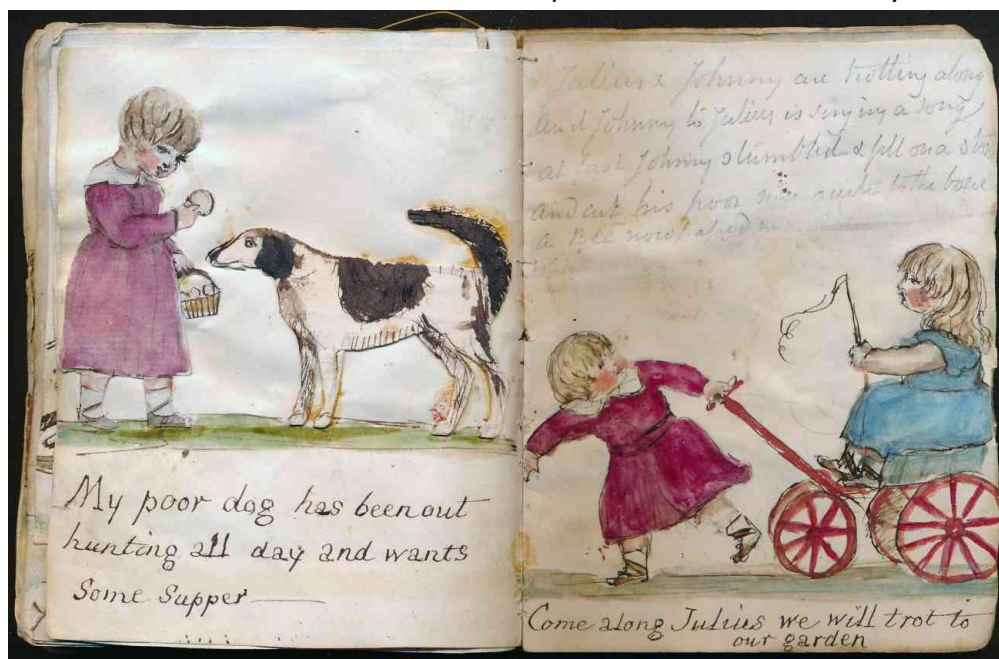 My poor dog has been out
hunting all day and wants
Some Supper
Julius & Johnny are trotting along
And Johnny to Julius is singing a song
at last Johnny stumbled & fell on a
and cut his poor quite to the bone
a Bee now
Come along Julius we will trot to
our garden